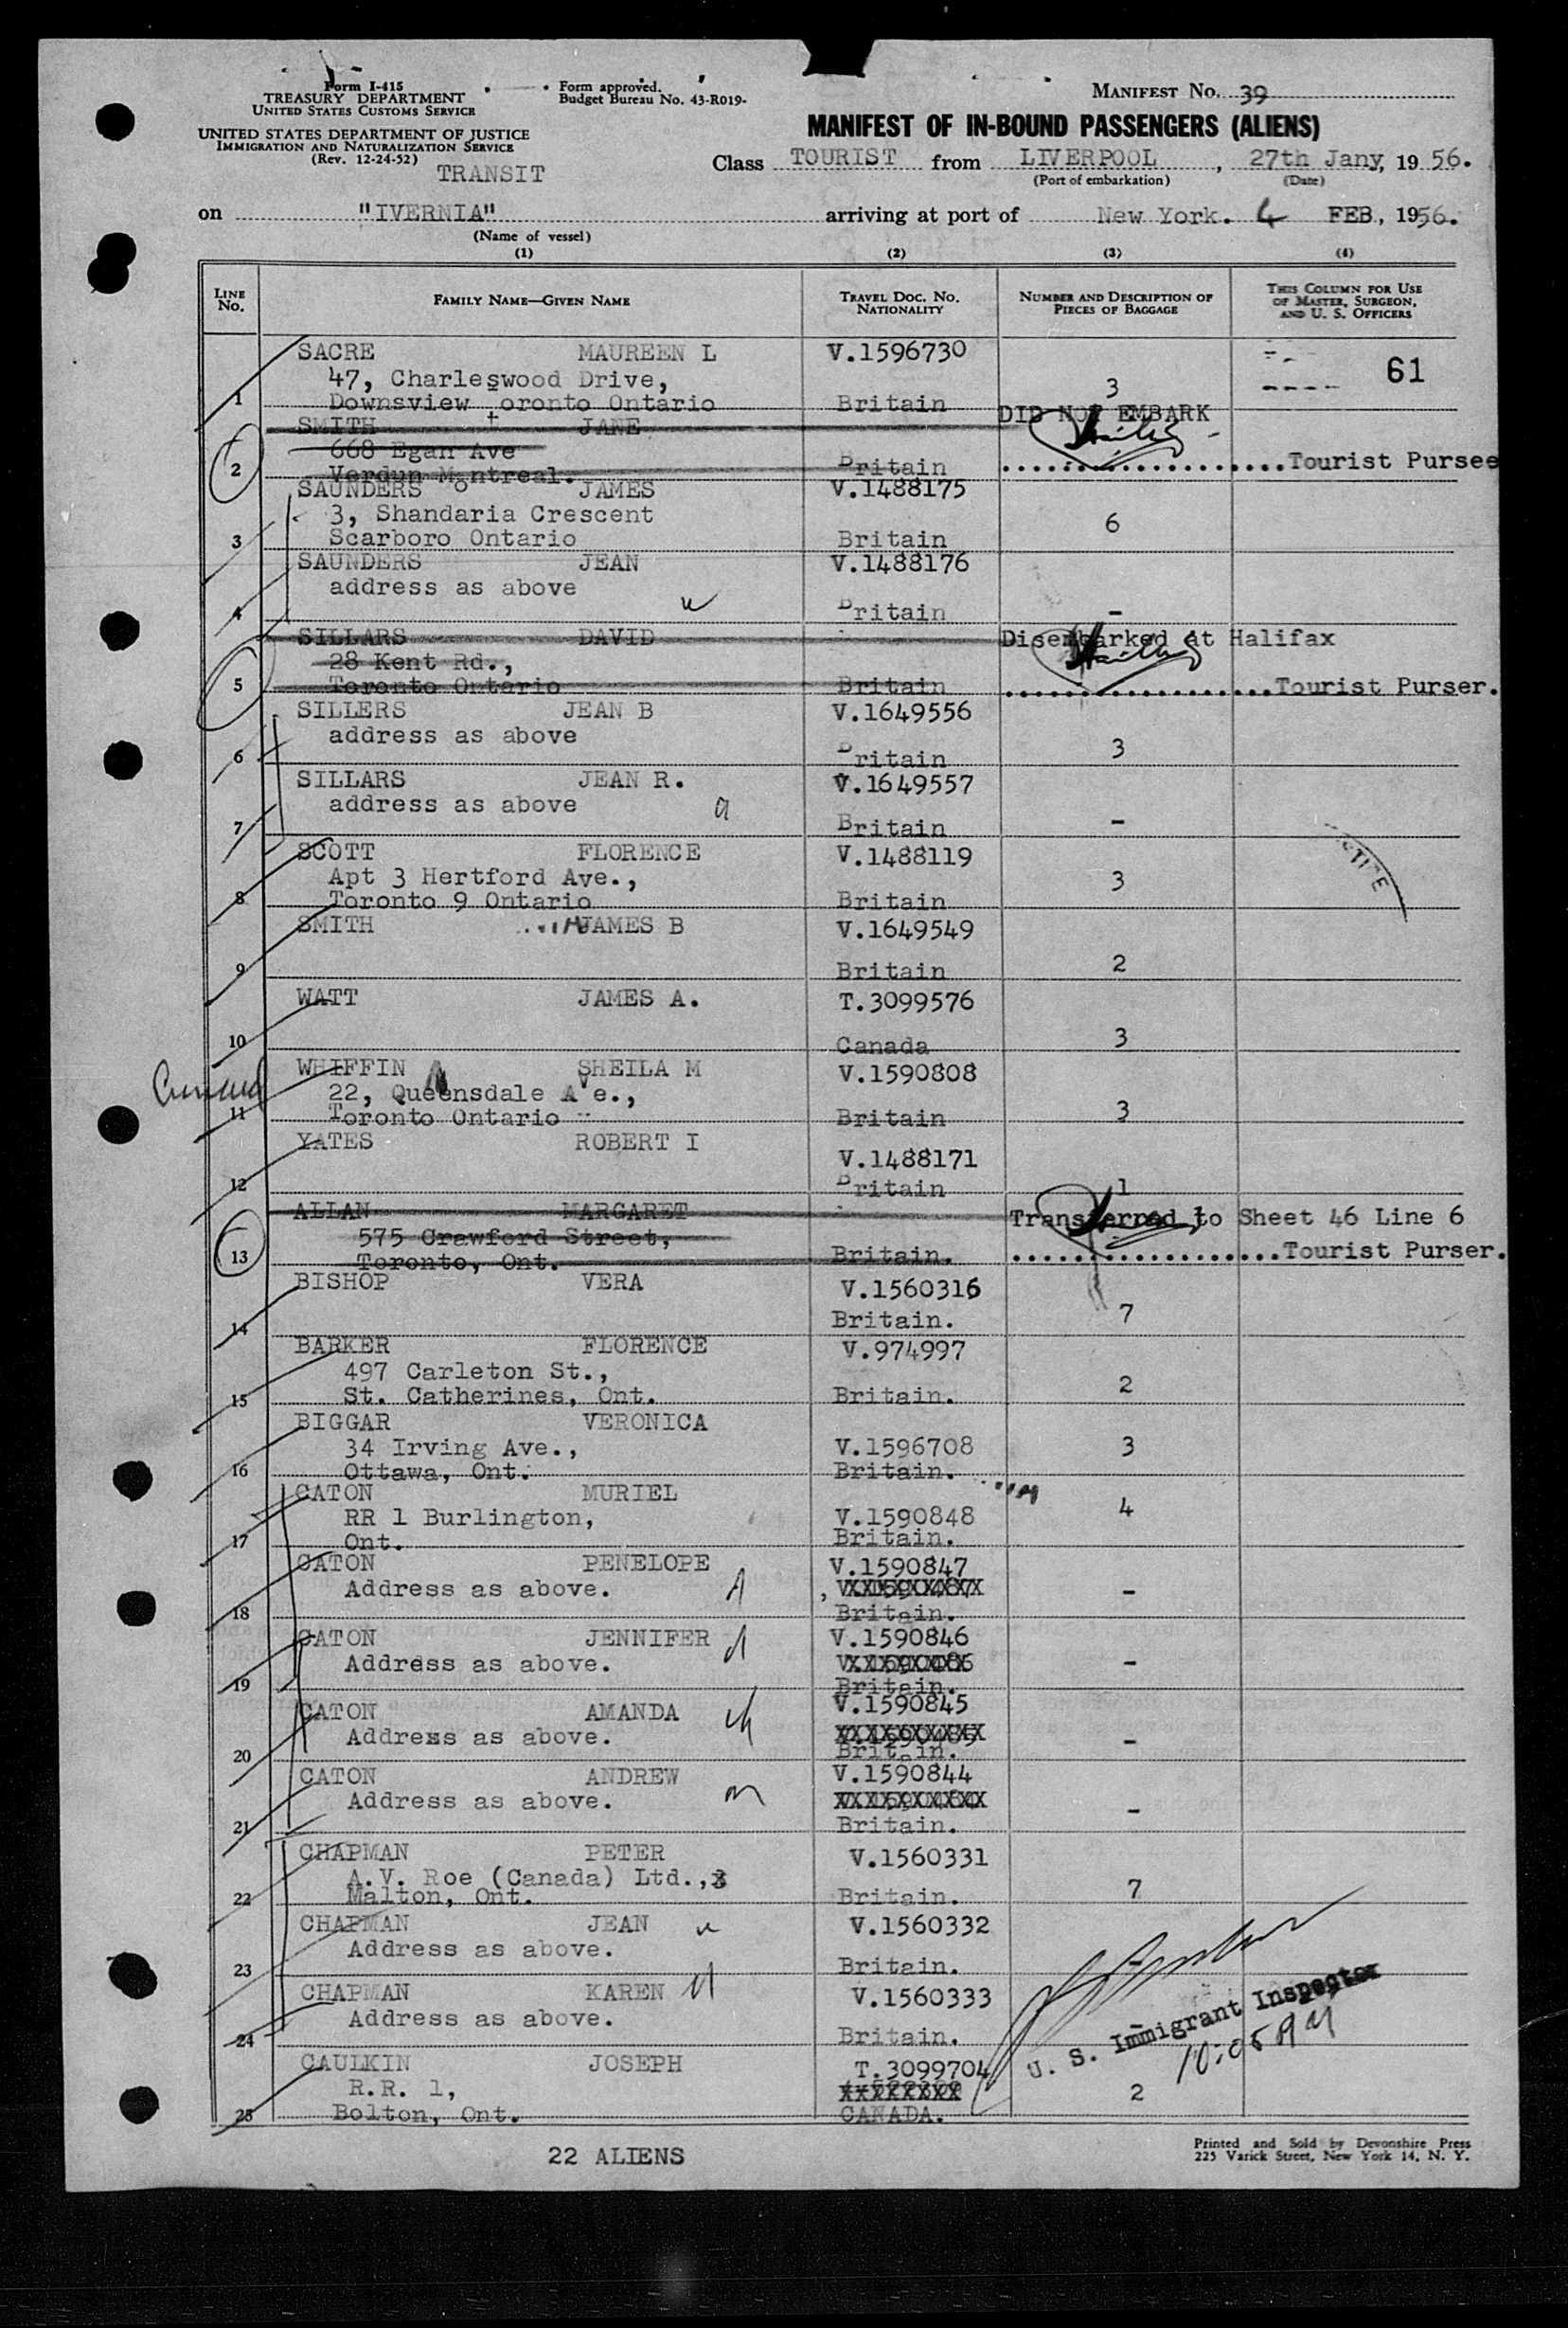 Form I-415
TREASURY DEPARTMENT
UNITED STATES CUSTOMS SERVICE
UNITED STATES DEPARTMENT OF JUSTICE
IMMIGRATION AND NATURALIZATION SERVICE
(Rev. 12-24-52)
TRANSIT
Form approved.
Budget Bureau No. 43-R019-
MANIFEST No. 39
MANIFEST OF IN-BOUND PASSENGERS (ALIENS)
Class TOURIST from LIVERPOOL, 27th Jany, 1956.
(Port of embarkation) (Date)
on "IVERNIA" arriving at port of New York. 4 FEB, 1956.
(Name of vessel)
(1) (2) (3) (4)
LINE No. FAMILY NAME—GIVEN NAME TRAVEL DOC. No. NATIONALITY NUMBER AND DESCRIPTION OF PIECES OF BAGGAGE THIS COLUMN FOR USE OF MASTER, SURGEON, AND U. S. OFFICERS
SACRE MAUREEN L V.1596730
61
47, Charleswood Drive, 3
1 Downsview Toronto Ontario Britain
DID NOT EMBARK
SMITH JANE
668 Egan Ave
2 Verdun Montreal. Britain Tourist Purser
SAUNDERS JAMES V.1488175
3, Shandaria Crescent 6
3 Scarboro Ontario Britain
SAUNDERS JEAN V.1488176
address as above
4 Britain -
SILLARS DAVID Disembarked at Halifax
28 Kent Rd.,
5 Toronto Ontario Britain Tourist Purser.
SILLERS JEAN B V.1649556
address as above
6 Britain 3
SILLARS JEAN R. V.1649557
address as above
7 Britain -
SCOTT FLORENCE V.1488119
Apt 3 Hertford Ave., 3
8 Toronto 9 Ontario Britain
SMITH JAMES B V.1649549
9 Britain 2
WATT JAMES A. T.3099576
10 Canada 3
WHIFFIN SHEILA M V.1590808
22, Queensdale Ave.,
11 Toronto Ontario Britain 3
YATES ROBERT I
V.1488171
12 Britain 1
ALLAN MARGARET Transferred to Sheet 46 Line 6
575 Crawford Street,
13 Toronto, Ont. Britain. Tourist Purser.
BISHOP VERA V.1560316
14 Britain. 7
BARKER FLORENCE V.974997
497 Carleton St.,
15 St. Catherines, Ont. Britain. 2
BIGGAR VERONICA
34 Irving Ave., V.1596708 3
16 Ottawa, Ont. Britain.
CATON MURIEL
RR 1 Burlington, V.1590848 4
17 Ont. Britain.
CATON PENELOPE V.1590847
Address as above. -
18 Britain.
CATON JENNIFER V.1590846
Address as above. -
19 Britain.
CATON AMANDA V.1590845
Address as above. -
20 Britain.
CATON ANDREW V.1590844
Address as above. -
21 Britain.
CHAPMAN PETER V.1560331
A.V. Roe (Canada) Ltd.,
22 Malton, Ont. Britain. 7
CHAPMAN JEAN V.1560332
Address as above.
23 Britain. -
CHAPMAN KAREN V.1560333
Address as above.
24 Britain. -
U. S. Immigrant Inspector
10:05 AM
CAULKIN JOSEPH T.3099704
R.R. 1, 2
25 Bolton, Ont. CANADA.
22 ALIENS
Printed and Sold by Devonshire Press
225 Varick Street, New York 14, N. Y.